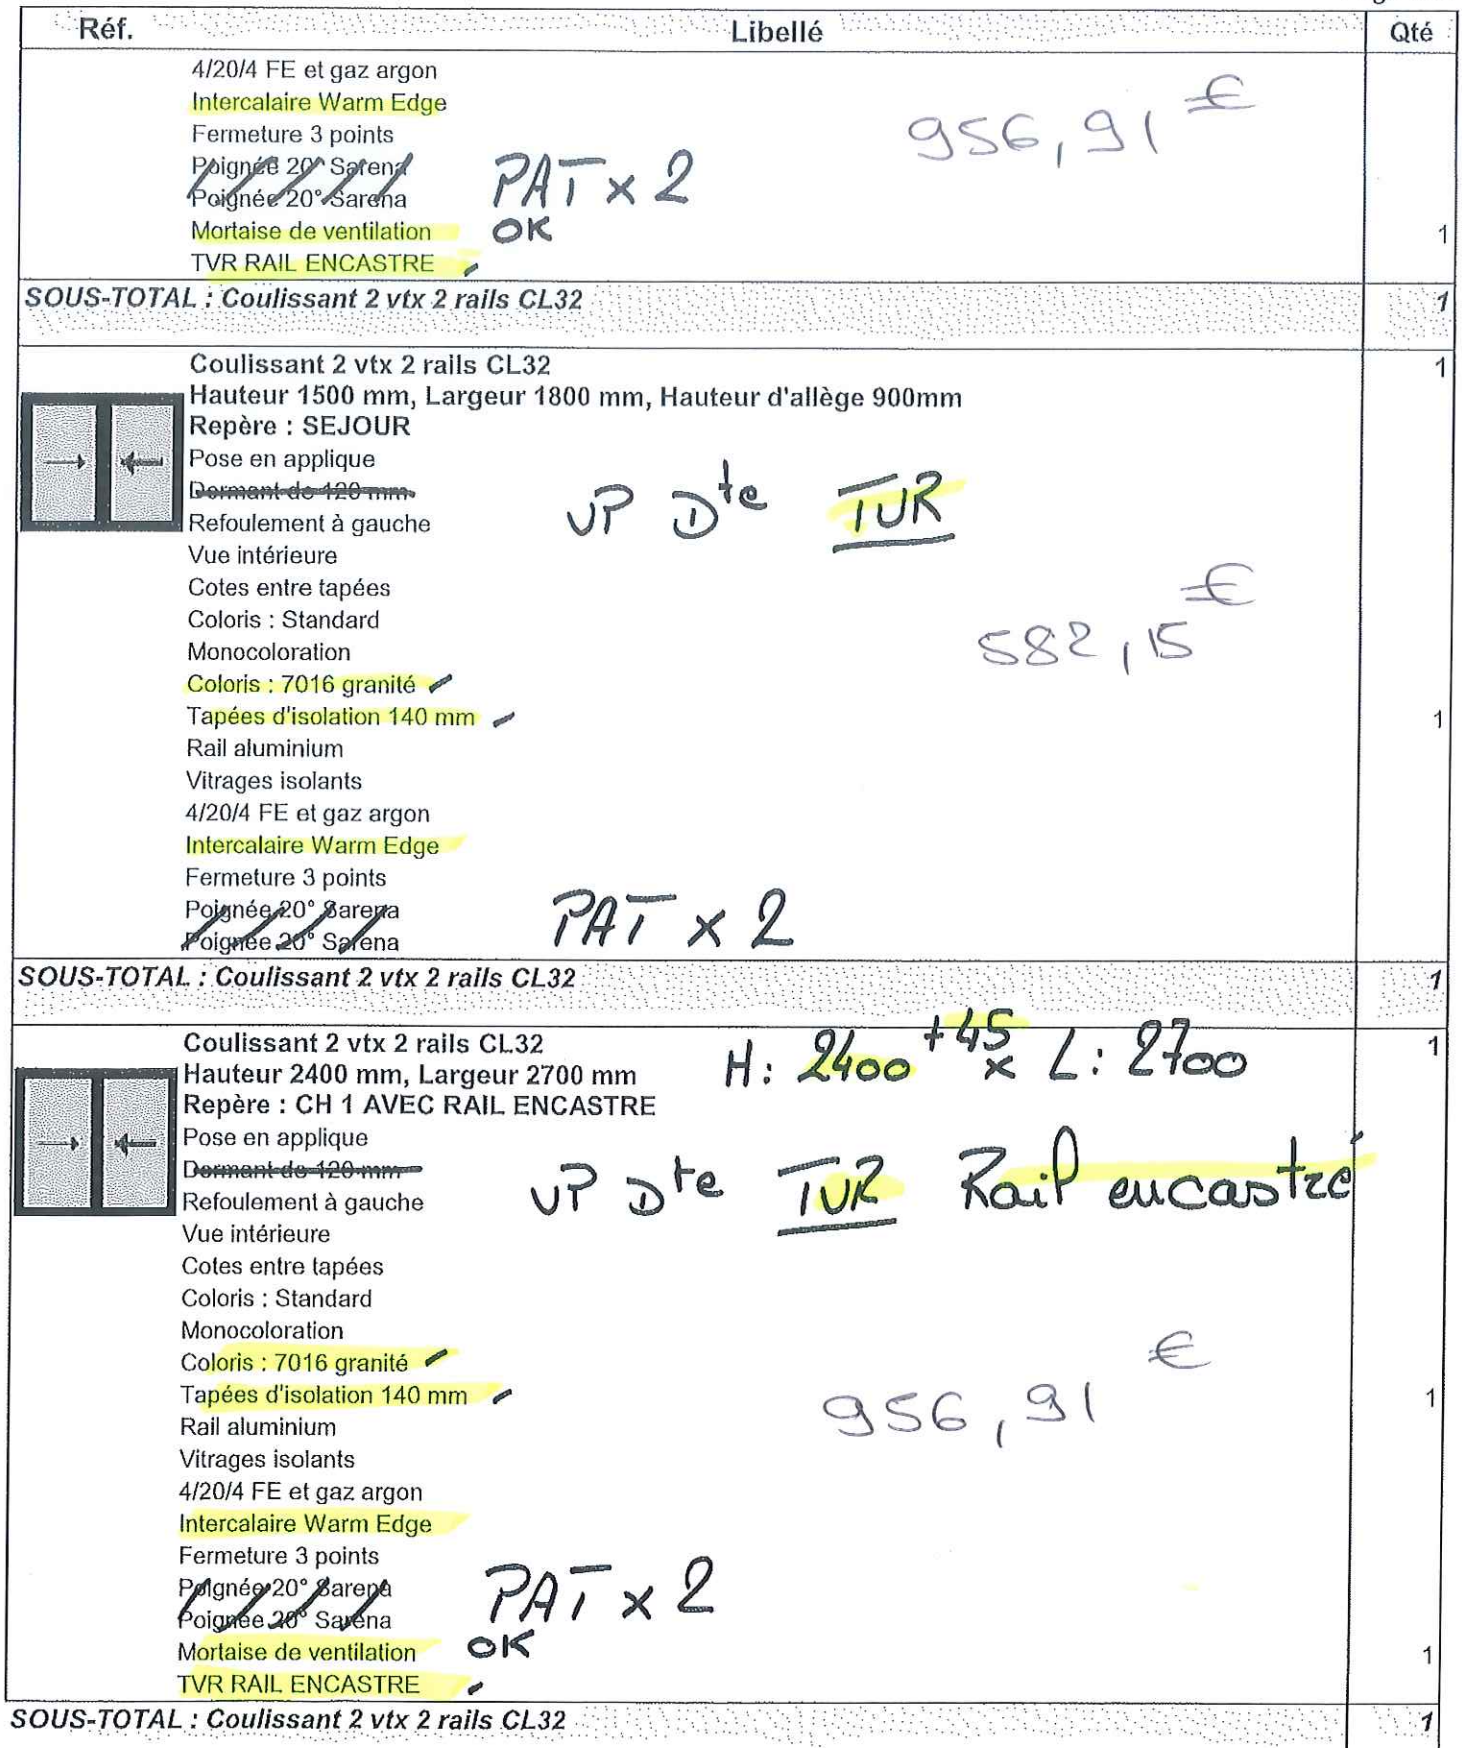 Réf. Libellé Qté
4/20/4 FE et gaz argon
Intercalaire Warm Edge
956,91 €
Fermeture 3 points
Poignée 20° Sarena
PAT x 2
Poignée 20° Sarena
Mortaise de ventilation OK 1
TVR RAIL ENCASTRE
SOUS-TOTAL : Coulissant 2 vtx 2 rails CL32 1
Coulissant 2 vtx 2 rails CL32 1
Hauteur 1500 mm, Largeur 1800 mm, Hauteur d'allège 900mm
Repère : SEJOUR
Pose en applique
Dormant de 120 mm
VP Dte TVR
Refoulement à gauche
Vue intérieure
Cotes entre tapées
Coloris : Standard
582,15 €
Monocoloration
Coloris : 7016 granité
Tapées d'isolation 140 mm 1
Rail aluminium
Vitrages isolants
4/20/4 FE et gaz argon
Intercalaire Warm Edge
Fermeture 3 points
Poignée 20° Sarena
PAT x 2
Poignée 20° Sarena
SOUS-TOTAL : Coulissant 2 vtx 2 rails CL32 1
Coulissant 2 vtx 2 rails CL32 1
H: 2400 +45 x L: 2700
Hauteur 2400 mm, Largeur 2700 mm
Repère : CH 1 AVEC RAIL ENCASTRE
Pose en applique
Dormant de 120 mm
VP Dte TVR Rail encastré
Refoulement à gauche
Vue intérieure
Cotes entre tapées
Coloris : Standard
Monocoloration
Coloris : 7016 granité
Tapées d'isolation 140 mm 1
956,91 €
Rail aluminium
Vitrages isolants
4/20/4 FE et gaz argon
Intercalaire Warm Edge
Fermeture 3 points
Poignée 20° Sarena
PAT x 2
Poignée 20° Sarena
Mortaise de ventilation OK 1
TVR RAIL ENCASTRE
SOUS-TOTAL : Coulissant 2 vtx 2 rails CL32 1